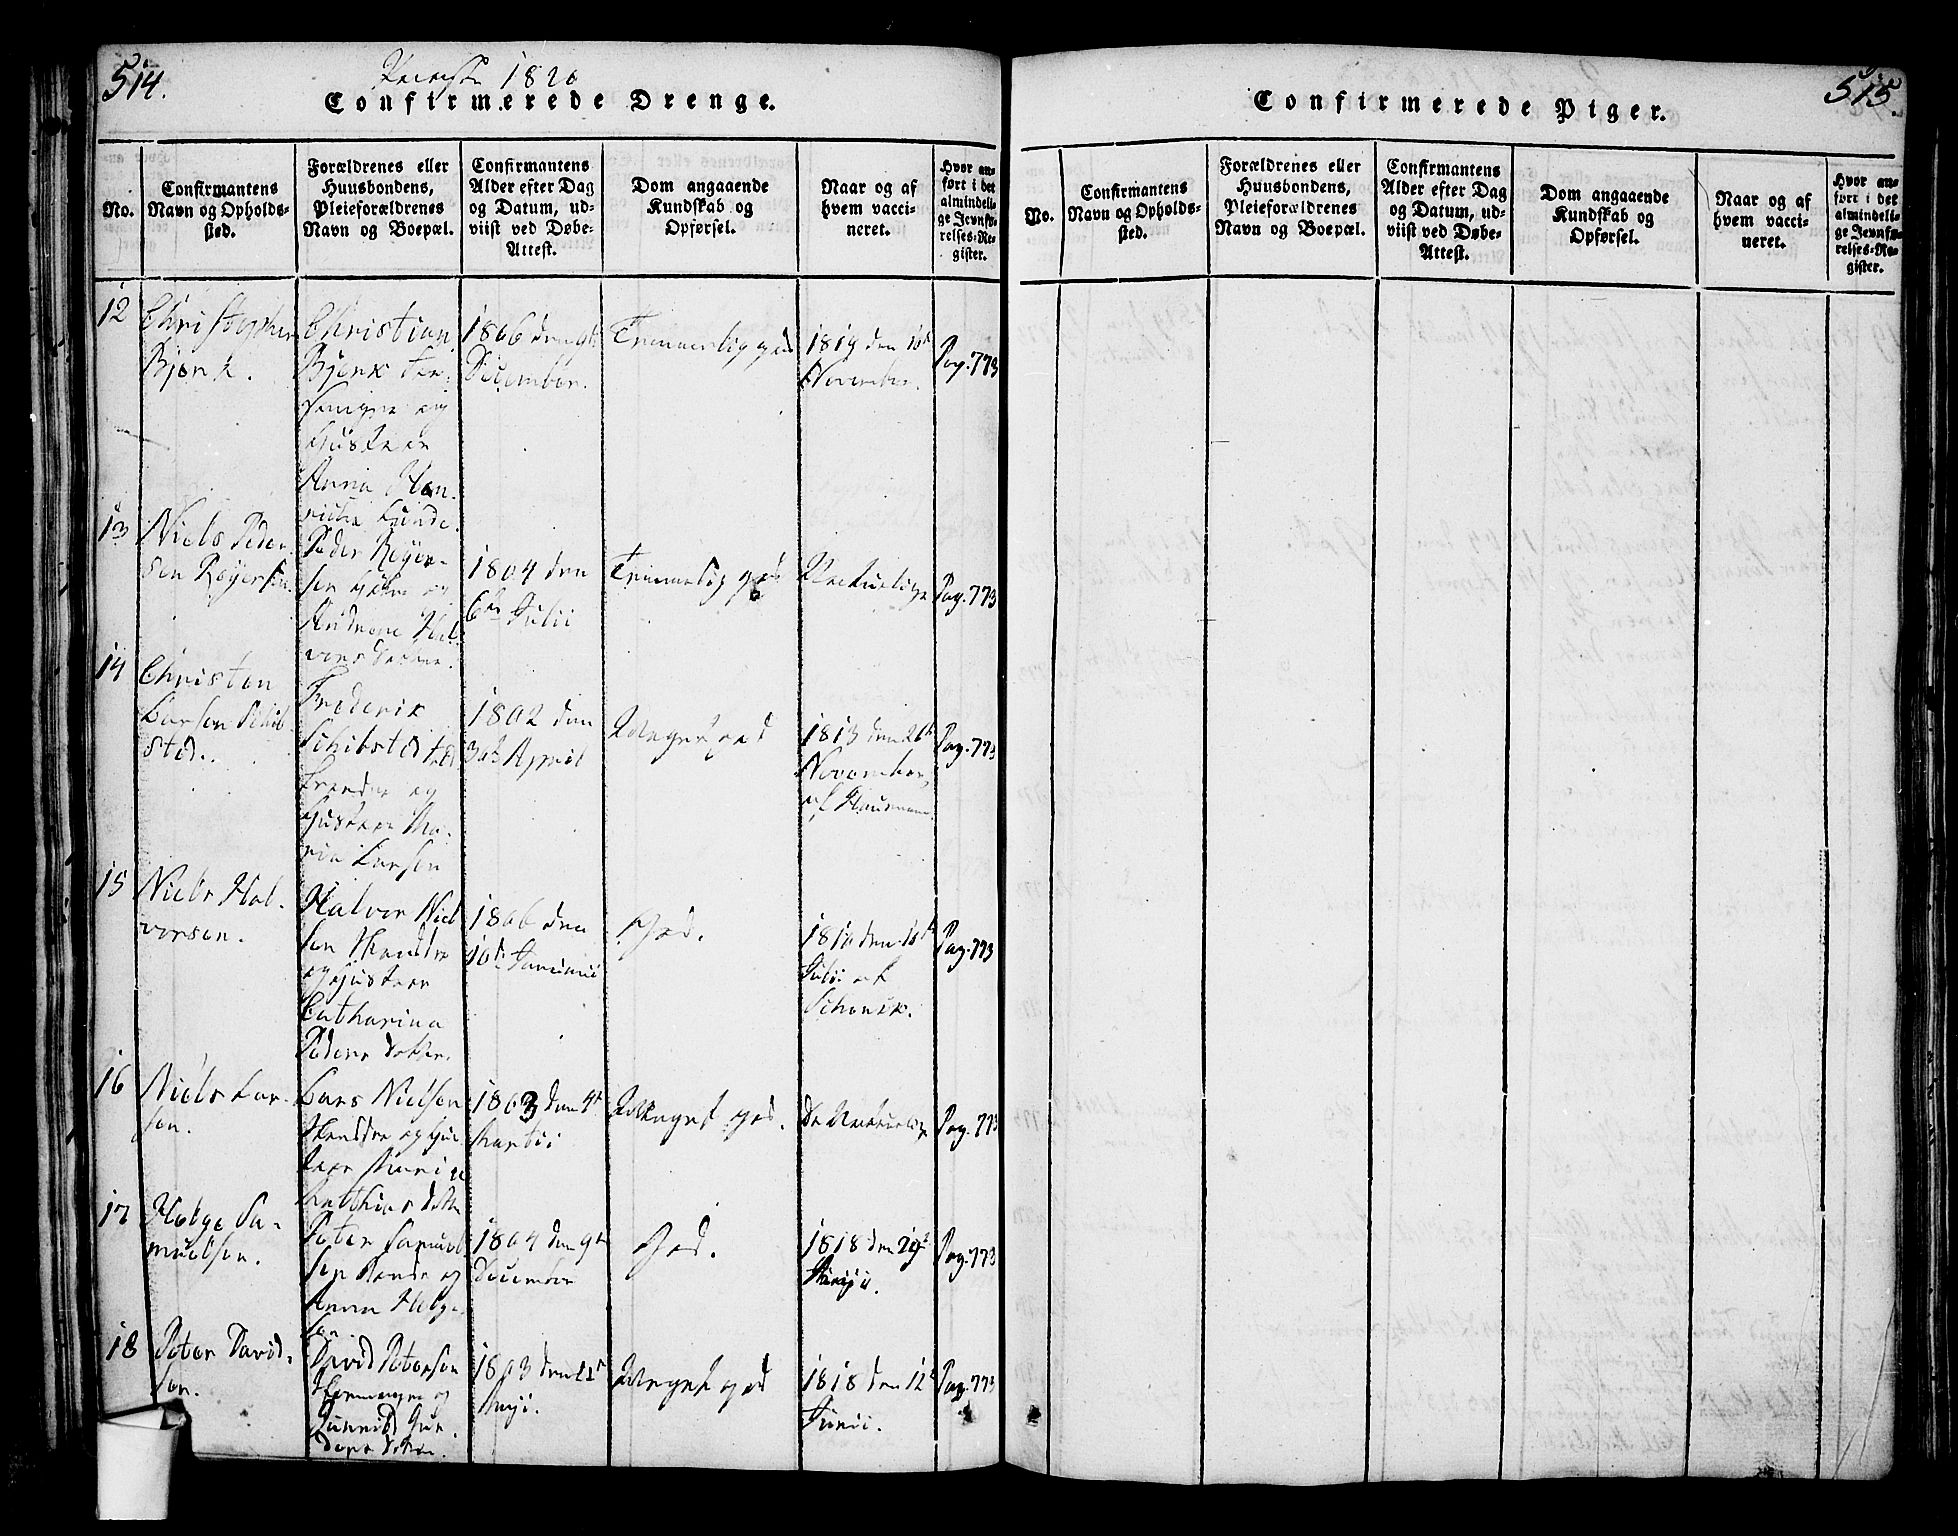 514.
1820
Confirmerede Drenge.
No.
Confirmantens
Navn og Opholds-
sted.
Forældrenes eller
Huusbondens,
Pleieforældrenes
Navn og Boepæl.
Confirmantens
Alder efter Dag
og Datum, ud-
viist ved Døbe-
Attest.
Dom angaaende
Kundskab og
Opførsel.
Naar og af
hvem vacci-
neret.
Hvor an-
ført i det
almindeli-
ge Jevnfø-
relses-Re-
gister.
12
Christopher
Bjørk.
Christian
Bjørk
og
Hustrue
Anna Hen-
Lunde.
1806 den 9de
December.
Temmelig god
1819 den 10de
November.
Pag. 773
13
Niels Peder-
sen Røyersen.
Peder Røyer-
sen og
Andrene Hal-
vors Datter.
1804 den
6te Julii
Temmelig god
Naturlige
Pag. 773
14
Christen
Larsen Schib-
sted.
Frederik
Schibsted
og
Hustrue Ma-
ria Larsen
1802 den
30te April
Meget god
1813 den 26de
November
af
Pag. 773
15
Niels Hal-
vorsen.
Halvor Niel-
sen
og Hustrue
Catharina
Peders Datter.
1806 den
10de Januarii
God.
1810 den 10de
Julii af
Pag. 773
16
Niels Lar-
sen.
Lars Nielsen
og Hu-
strue Maria
Mathias Datter
1803 den 4de
Martii
Meget god.
De Naturlige
Pag. 773
17
Helge Sa-
muelsen.
Peter Samuel-
sen og
Anna Helge-
1804 den 9de
December
God.
1818 den 29de
Pag. 773
18
Peter David-
sen.
David Petersen
og
Gunnild Gun-
ders Datter.
1803 den 21de
Maji.
Meget god
1818 den 12te
Junii.
Pag. 773
515.
Confirmerede Piger.
No.
Confirmantens
Navn og Opholds-
sted.
Forældrenes eller
Huusbondens,
Pleieforældrenes
Navn og Boepæl.
Confirmantens
Alder efter Dag
og Datum, ud-
viist ved Døbe-
Attest.
Dom angaaende
Kundskab og
Opførsel.
Naar og af
hvem vacci-
neret.
Hvor an-
ført i det
almindeli-
ge Jevnfø-
relses-Re-
gister.